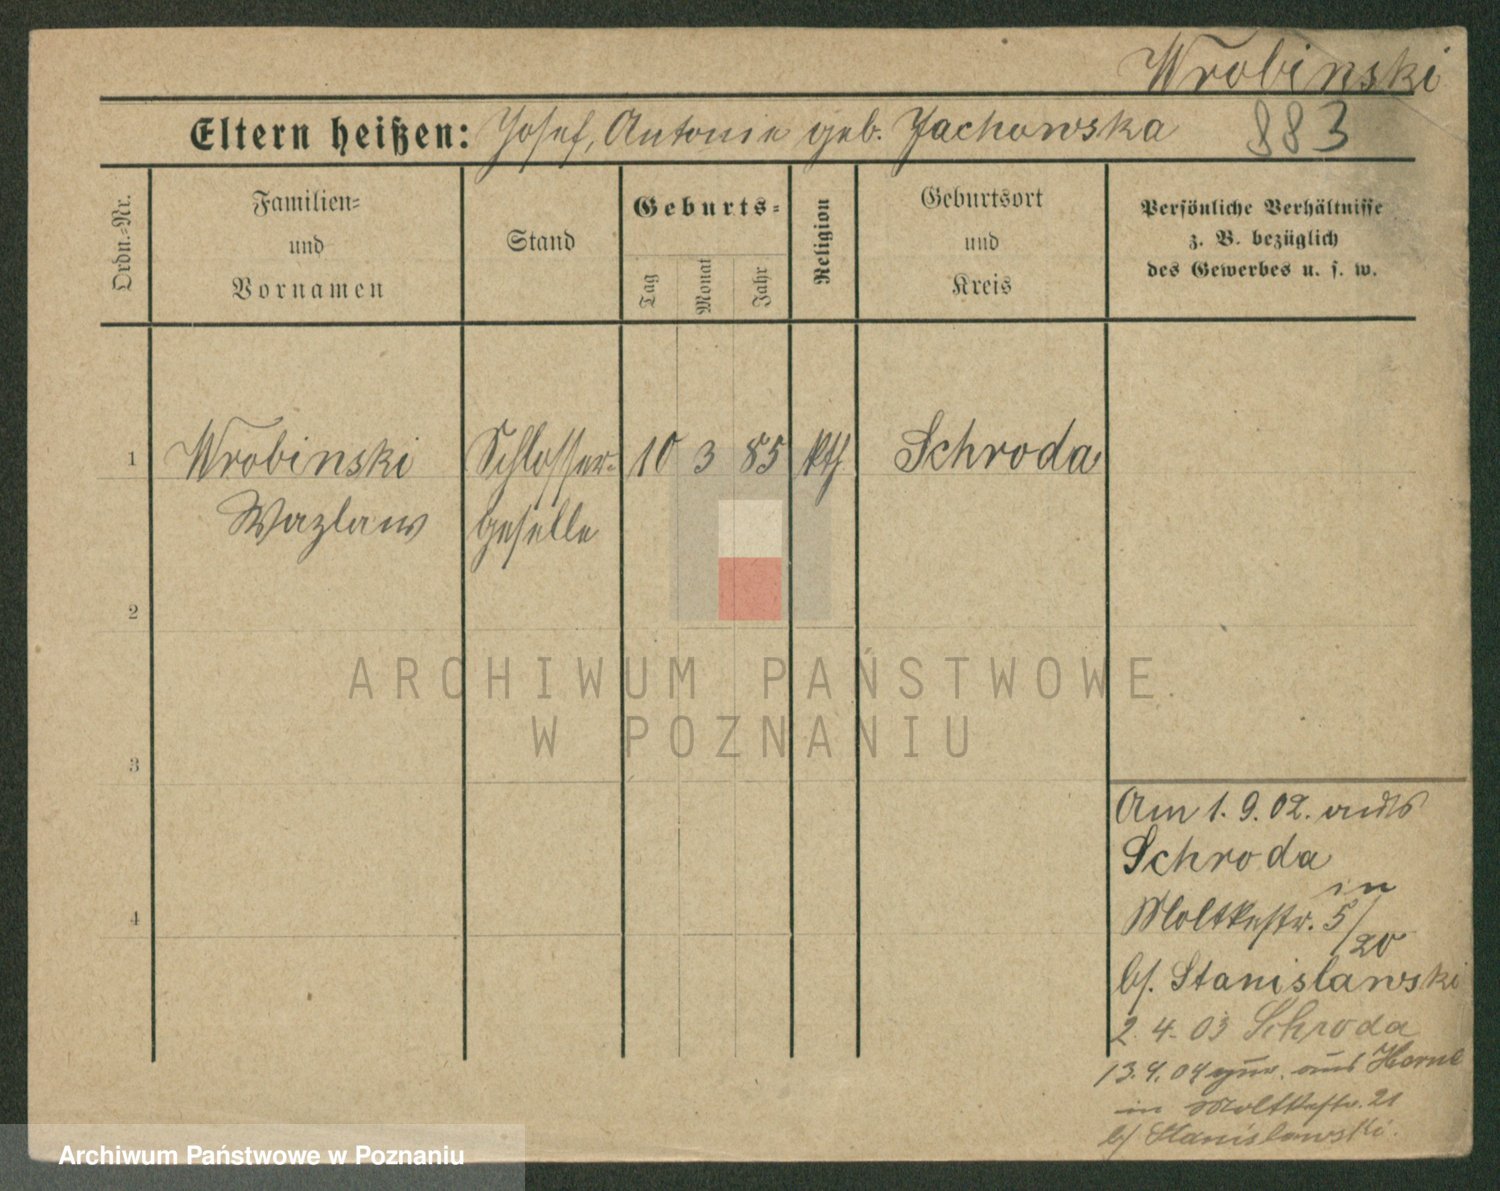 Wrobinski
Eltern heißen: Josef, Antonie geb. Jachowska 883
Ordn.-Nr.
Familien-
und
Vornamen
Stand
Geburts-
Tag
Monat
Jahr
Religion
Geburtsort
und
Kreis
Persönliche Verhältnisse
z. B. bezüglich
des Gewerbes u. s. w.
1 Wrobinski Schlosser- 10 3 85 kth Schroda
Wazlaw geselle
2
3
4
Am 1.9.02. aus
Schroda
in
Moltkestr. 5/20
b/. Stanislawski
2.4.03 Schroda
13.4.04 aus Herne
in Moltkestr. 21
b/ Stanislawski.
ARCHIWUM PAŃSTWOWE
W POZNANIU
Archiwum Państwowe w Poznaniu